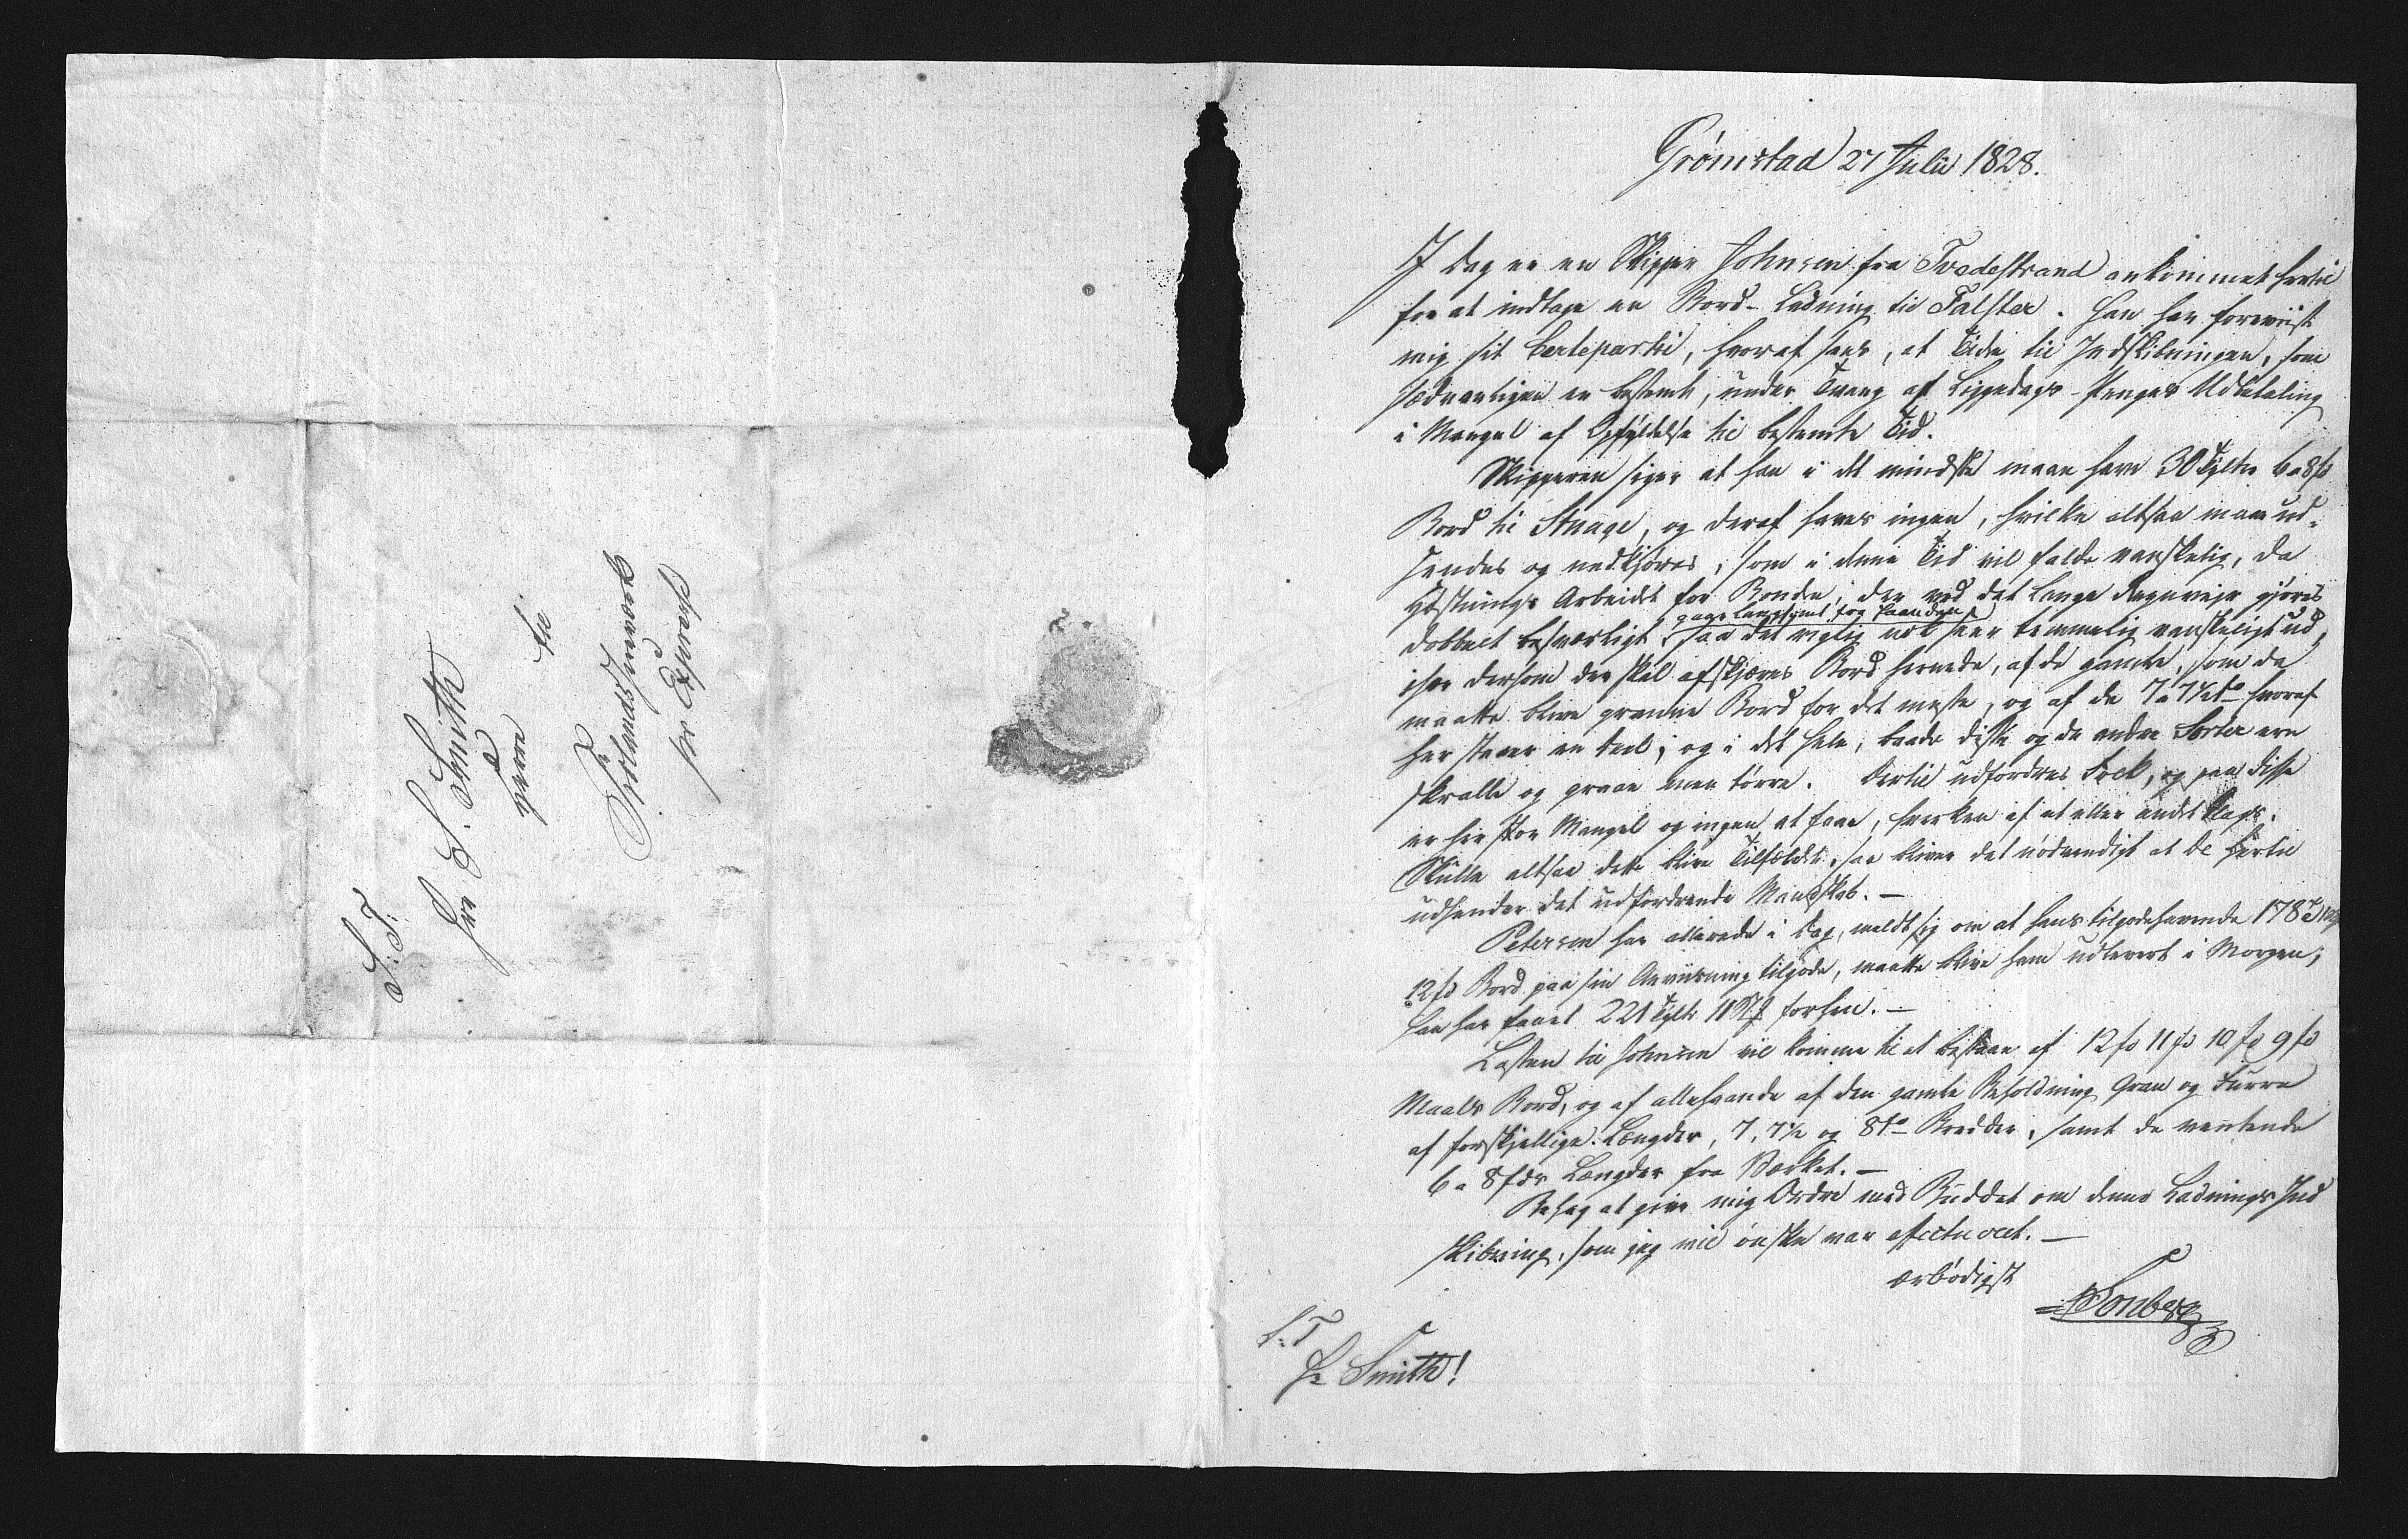 S: T:
Herr S. Smith
paa
til
Frolands Jernværk
pr Express
Grömstad 27 Julii 1828.
I Dag er en Skipper Johnsen fra Tvedestrand ankommet hertil
for at indtage en Bord-Ladning til Falster. Han har foreviist
mig sit Certeparti, hvoraf sees, at Tiden til Indskibningen, som
sædvanligen er bestemt, under Tvang af Liggedags-Penges Udbetaling
i Mangel af Opfyldelse til bestemte Tid.
Skipperen siger at han i det mindste maae have 30 Tylter 6 a 8 fs
Bord til Stuage, og deraf haves ingen, hvilke altsaa maae ud-
sendes og nedkjöres, som i denne Tid vil falde vanskelig, da
Höstnings Arbeidet for Bonden, der ved det lange Regnveir gjöres
dobbelt besværligt, saa det rigtig nok seer temmelig vanskeligt ud,
især dersom der skal afskjæres Bord hernede, af de gamle, som da
maatte blive granne Bord for det meste, og af de 7 a 7½ to hvoraf
her staaer en Deel; og i det hele, baade disse og de andre Sorter ere
skralle og graae men törre. Dertil udfordres Folk, og paa disse
er her stor Mangel og ingen at faae, hverken af et eller andet Slags.
Skulle altsaa dette blive Tilfældet, saa bliver det nödvendigt at De hertil
udsender det udfordrende Mandskab. —
Petersen har allerede i Dag, meldt sig om at hans tilgodehavende 178 T
12 fs Bord paa sin Anviisning tilgode, maatte blive ham udleveret i Morgen;
han har faaet 221 Tylt 11 forhen. —
Lasten til Johnsen vil komme til at bestaae af 12 fs 11 fs 10 fs 9 fs
Maals Bord, og af allehaande af den gamle Beholdning Gran og Furre
af forskjellige Længder, 7, 7½ og 8 to Bredder, samt de ventende
6 a 8 fds Længder fra Værket. —
Behag at give mig Ordre med Buddet om denne Ladnings Ind
skibning, som jeg vil önske var effectueret. —
ærbödigst
Tonberg
S: T
Hr Smith!